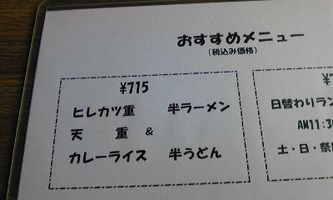 おすすめメニュー
(税込み価格)
¥715
ヒレカツ重 半ラーメン
天 重 &
カレーライス 半うどん
¥7
日替わりラン
AM11:3
土・日・祭